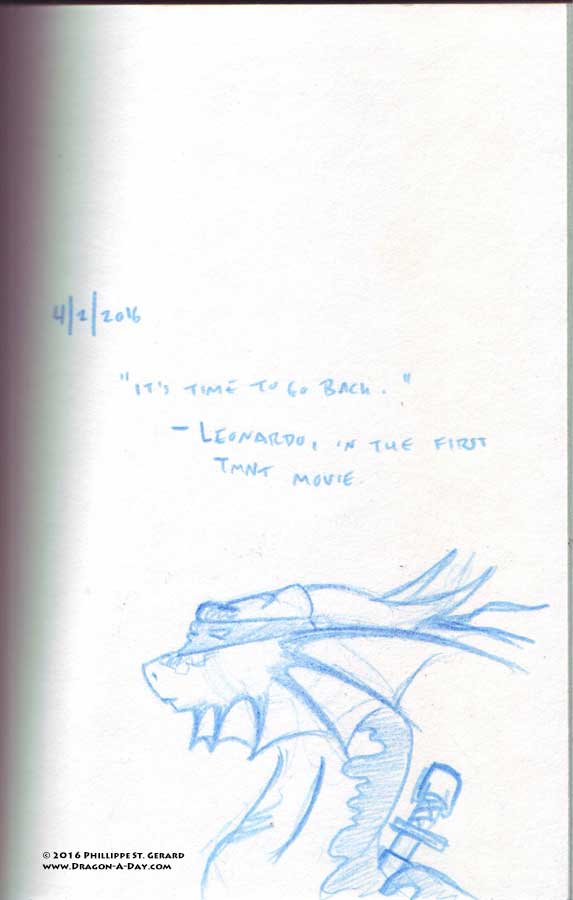 4/2/2016
"IT'S TIME TO GO BACK."
- LEONARDO, IN THE FIRST
TMNT MOVIE
© 2016 PHILLIPPE ST. GERARD
WWW.DRAGON-A-DAY.COM